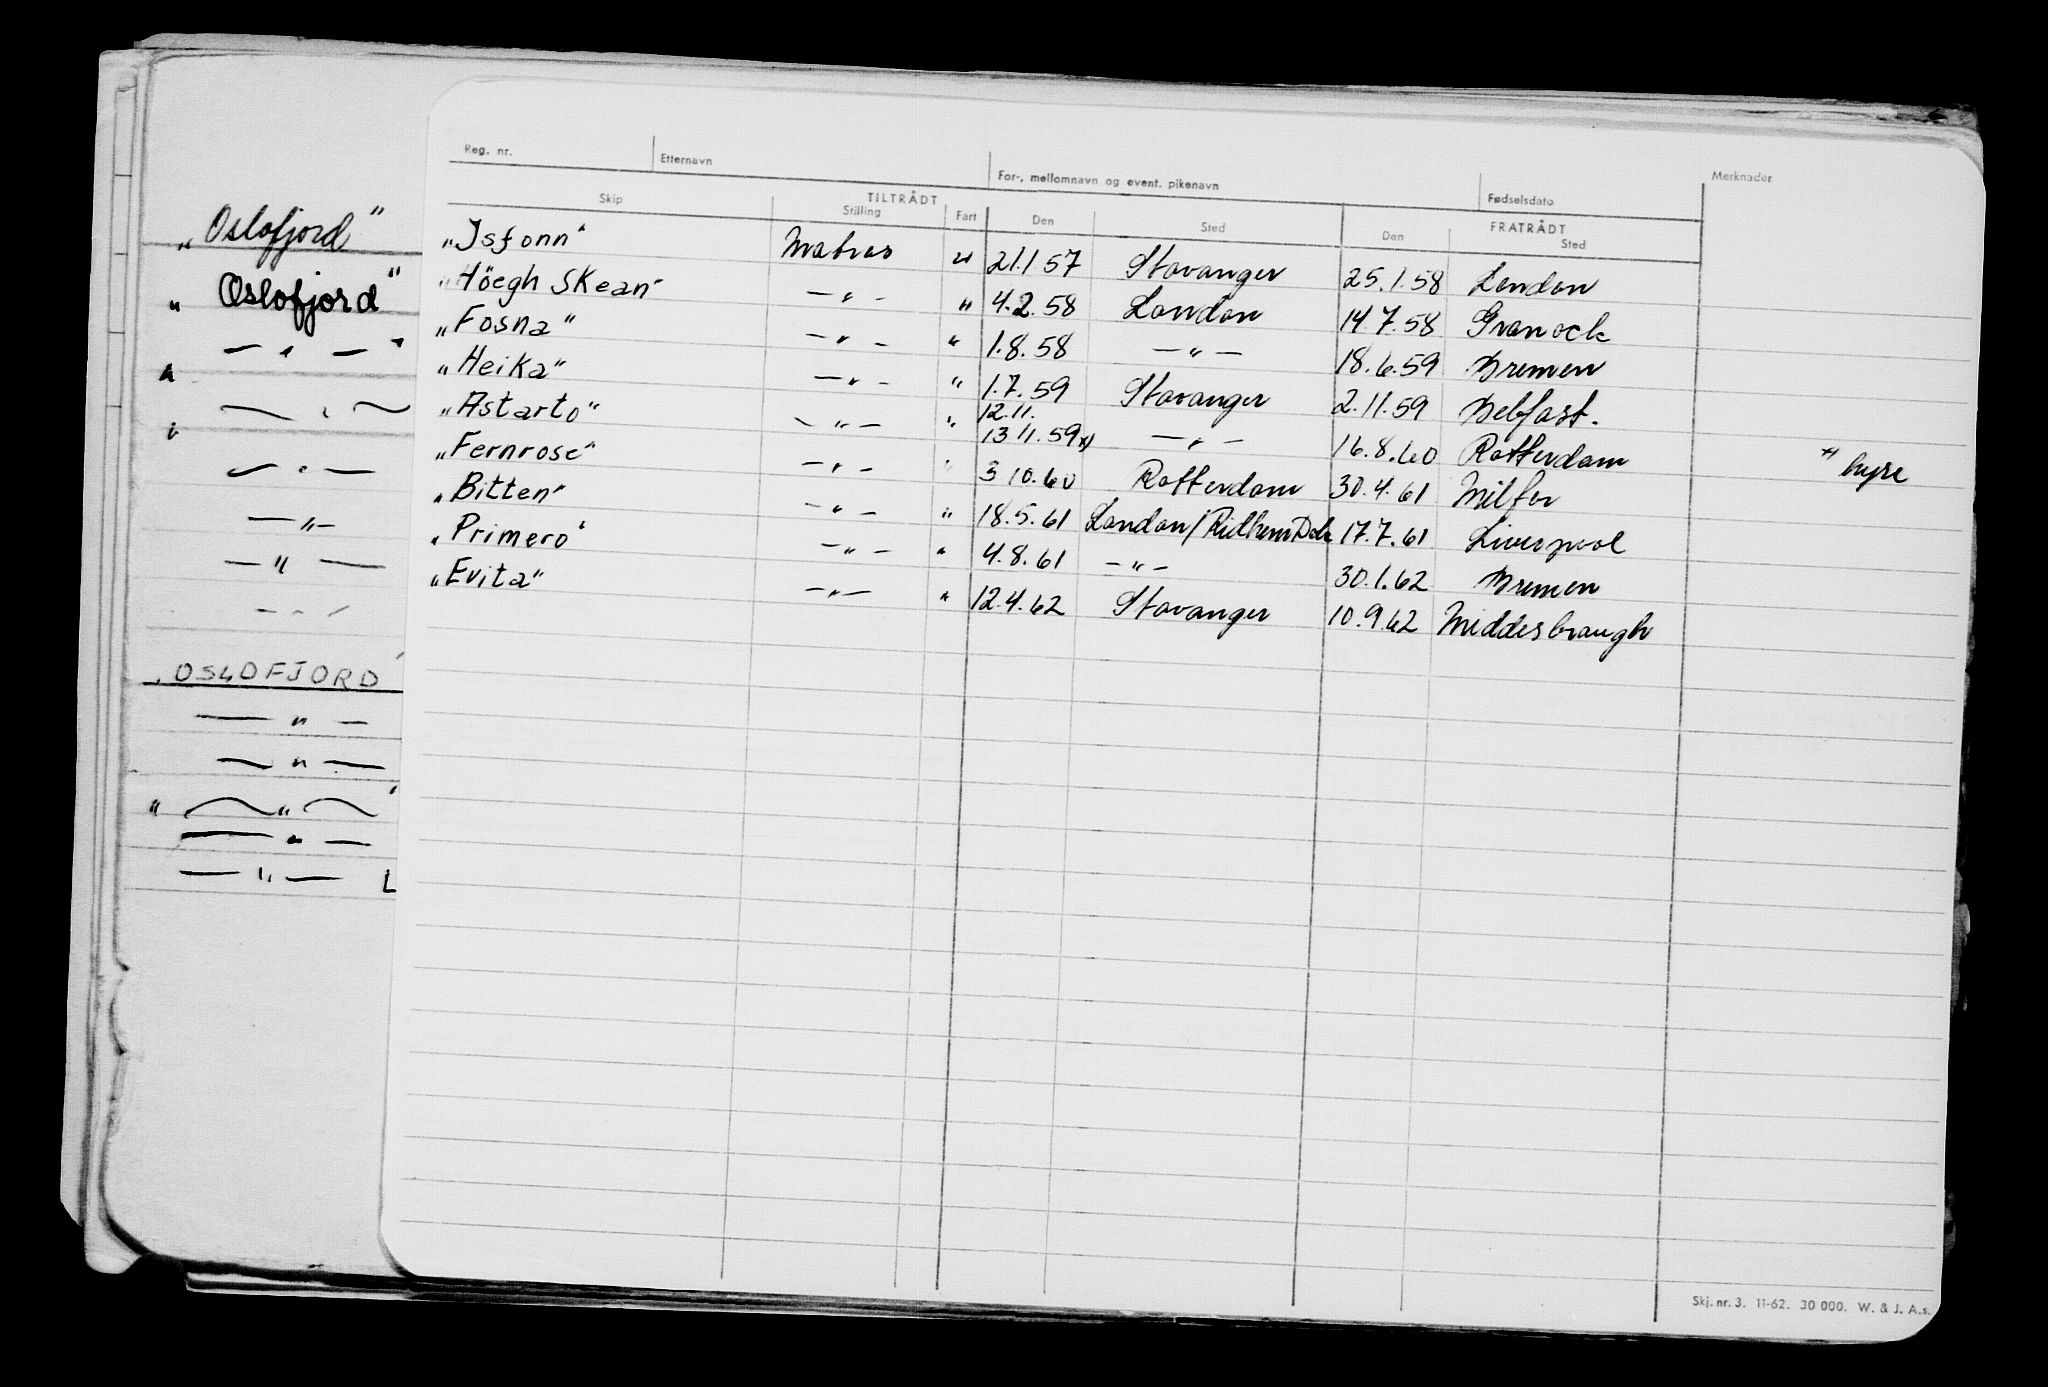 Reg. nr. Etternavn For-, mellomnavn og event. pikenavn Fødselsdato Merknader
TILTRÅDT FRATRÅDT
Skip Stilling Fart Den Sted Den Sted
„Isfonn" Matros " 21.1 57 Stavanger 25.1.58 London
"Höegh Skean" —"— " 4.2.58 London 14 7.58 Granock
„Fosna" —"— " 1.8.58 —"— 18.6.59 Bremen
„Heika" —"— " 1.7.59 Stavanger 2.11.59 Belfast.
12.11.
„Astarto" —"— " 13 11.59 x) —"— 16.8.60 Rotterdam x) hyre
„Fernrose" —"— " 3 10.60 Rotterdam 30.4.61 Milfor
„Bitten" —"— " 18.5.61 London/Ridhem Dok 17.7.61 Liverpool
„Primero" —"— " 4.8.61 —"— 30.1.62 Bremen
„Evita" —"— " 12.4.62 Stavanger 10.9.62 Middesbraugh
„Oslofjord"
„Oslofjord"
—"—"
—"—
—"—
—"—
—"—
—"—
„OSLOFJORD"
—"—
—"—
" —"— "
—"—
—"— L
Skj. nr. 3. 11-62. 30 000. W. & J. A.s.